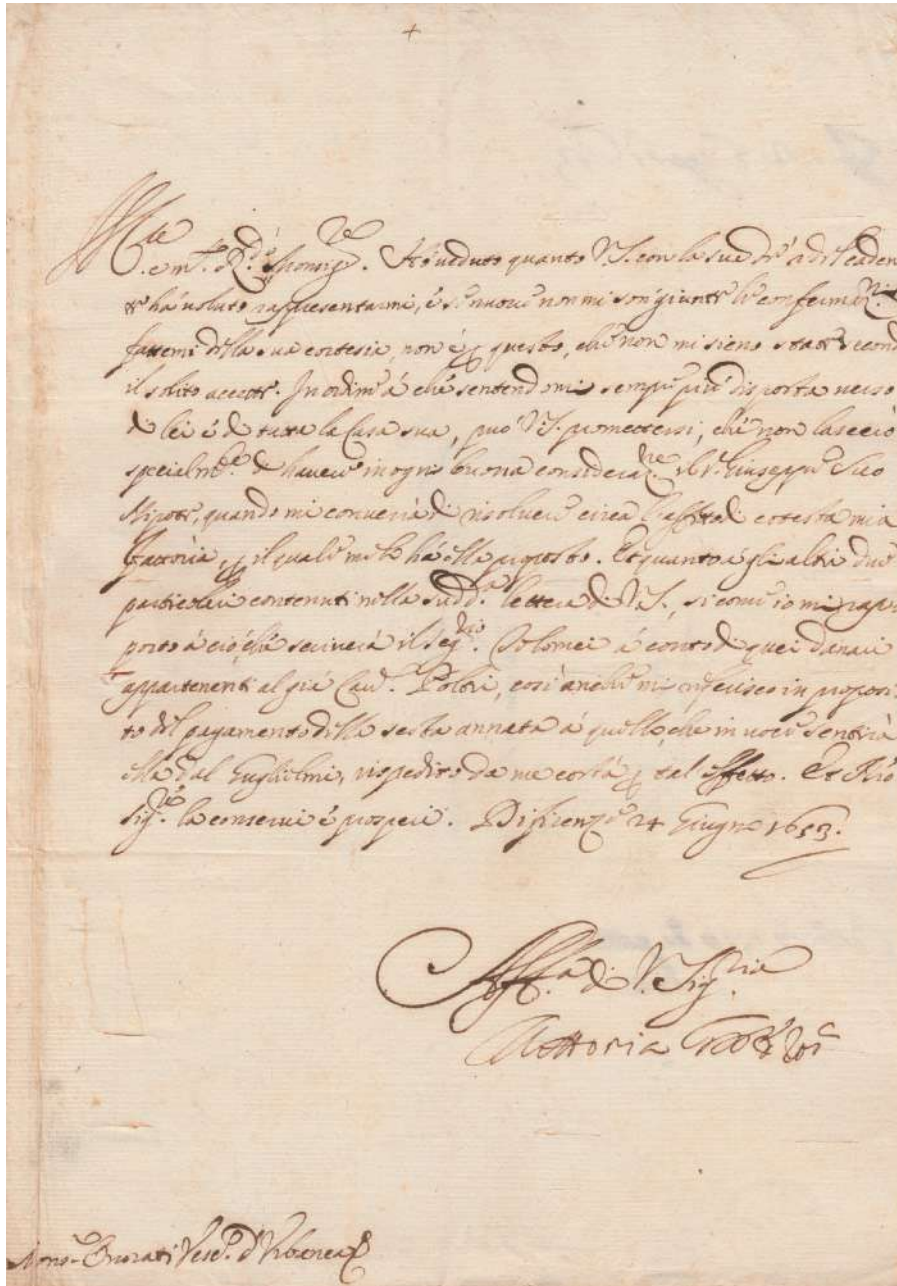 +
Ill.re e m.to R.do Monsig.re. Ho veduto quanto V.S. con la sua de' 2 del caden
te há voluto rappresentarmi, é se nuove non mi son giunte le
fattemi della sua cortesia, non é p questo, che non mi sieno state second
il solito accette. In ordine á che sentendomi sempre piú disposta verso
di lei é di tutta la Casa sua, puó V.S. promettersi, ché non lascieró
specialm.te di havere in ogni buona considera.ne il Giuseppe Suo
Nipote, quando mi converrá di risolvere circa l'affitto di cotesta mia
fattoria, p il quale me lo há ella proposto. Et quanto á gli altri due
particolari contenuti nella sudd.a lettera di V.S., si come io mi rap
porto á ció, ché scriverá il Seg.rio Tolomei á conto di quei danari
appartenenti al giá Cav.re così anche mi riferisco in proposi
to del pagamento della sesta annata á quello, che in voce sentirá
ella dal Guglielmi, rispedito da me costá p tal effetto. Et Dio
Sig.re la conservi é prosperi. Di firenze 24 Giugno 1653.
Aff.ma di V. Sig.ria
Vittoria
Mons.r Onorati Vesc.o d'Urbania